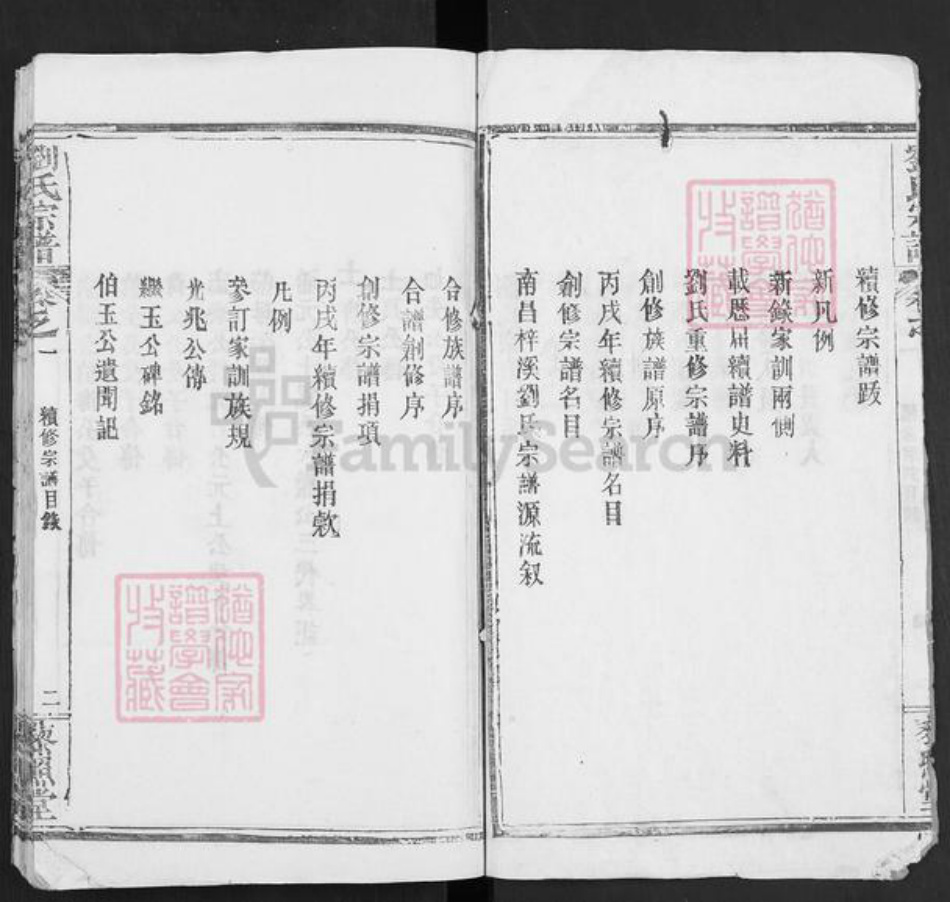 續修宗譜跋
新凡例
新錄家訓兩側
載歷屆續譜史料
劉氏重修宗譜序
創修族譜原序
丙戌年續修宗譜名目
創修宗譜名目
南昌梓溪劉氏宗譜源流叙
合修族譜序
合譜創修序
創修宗譜捐項
丙戌年續修宗譜捐欵
凡例
參訂家訓族規
光兆公傳
繼玉公碑銘
伯玉公遺聞記
劉氏宗譜
卷之一
續修宗譜目錄
二
藜照堂
譜學會
收藏
FamilySearch